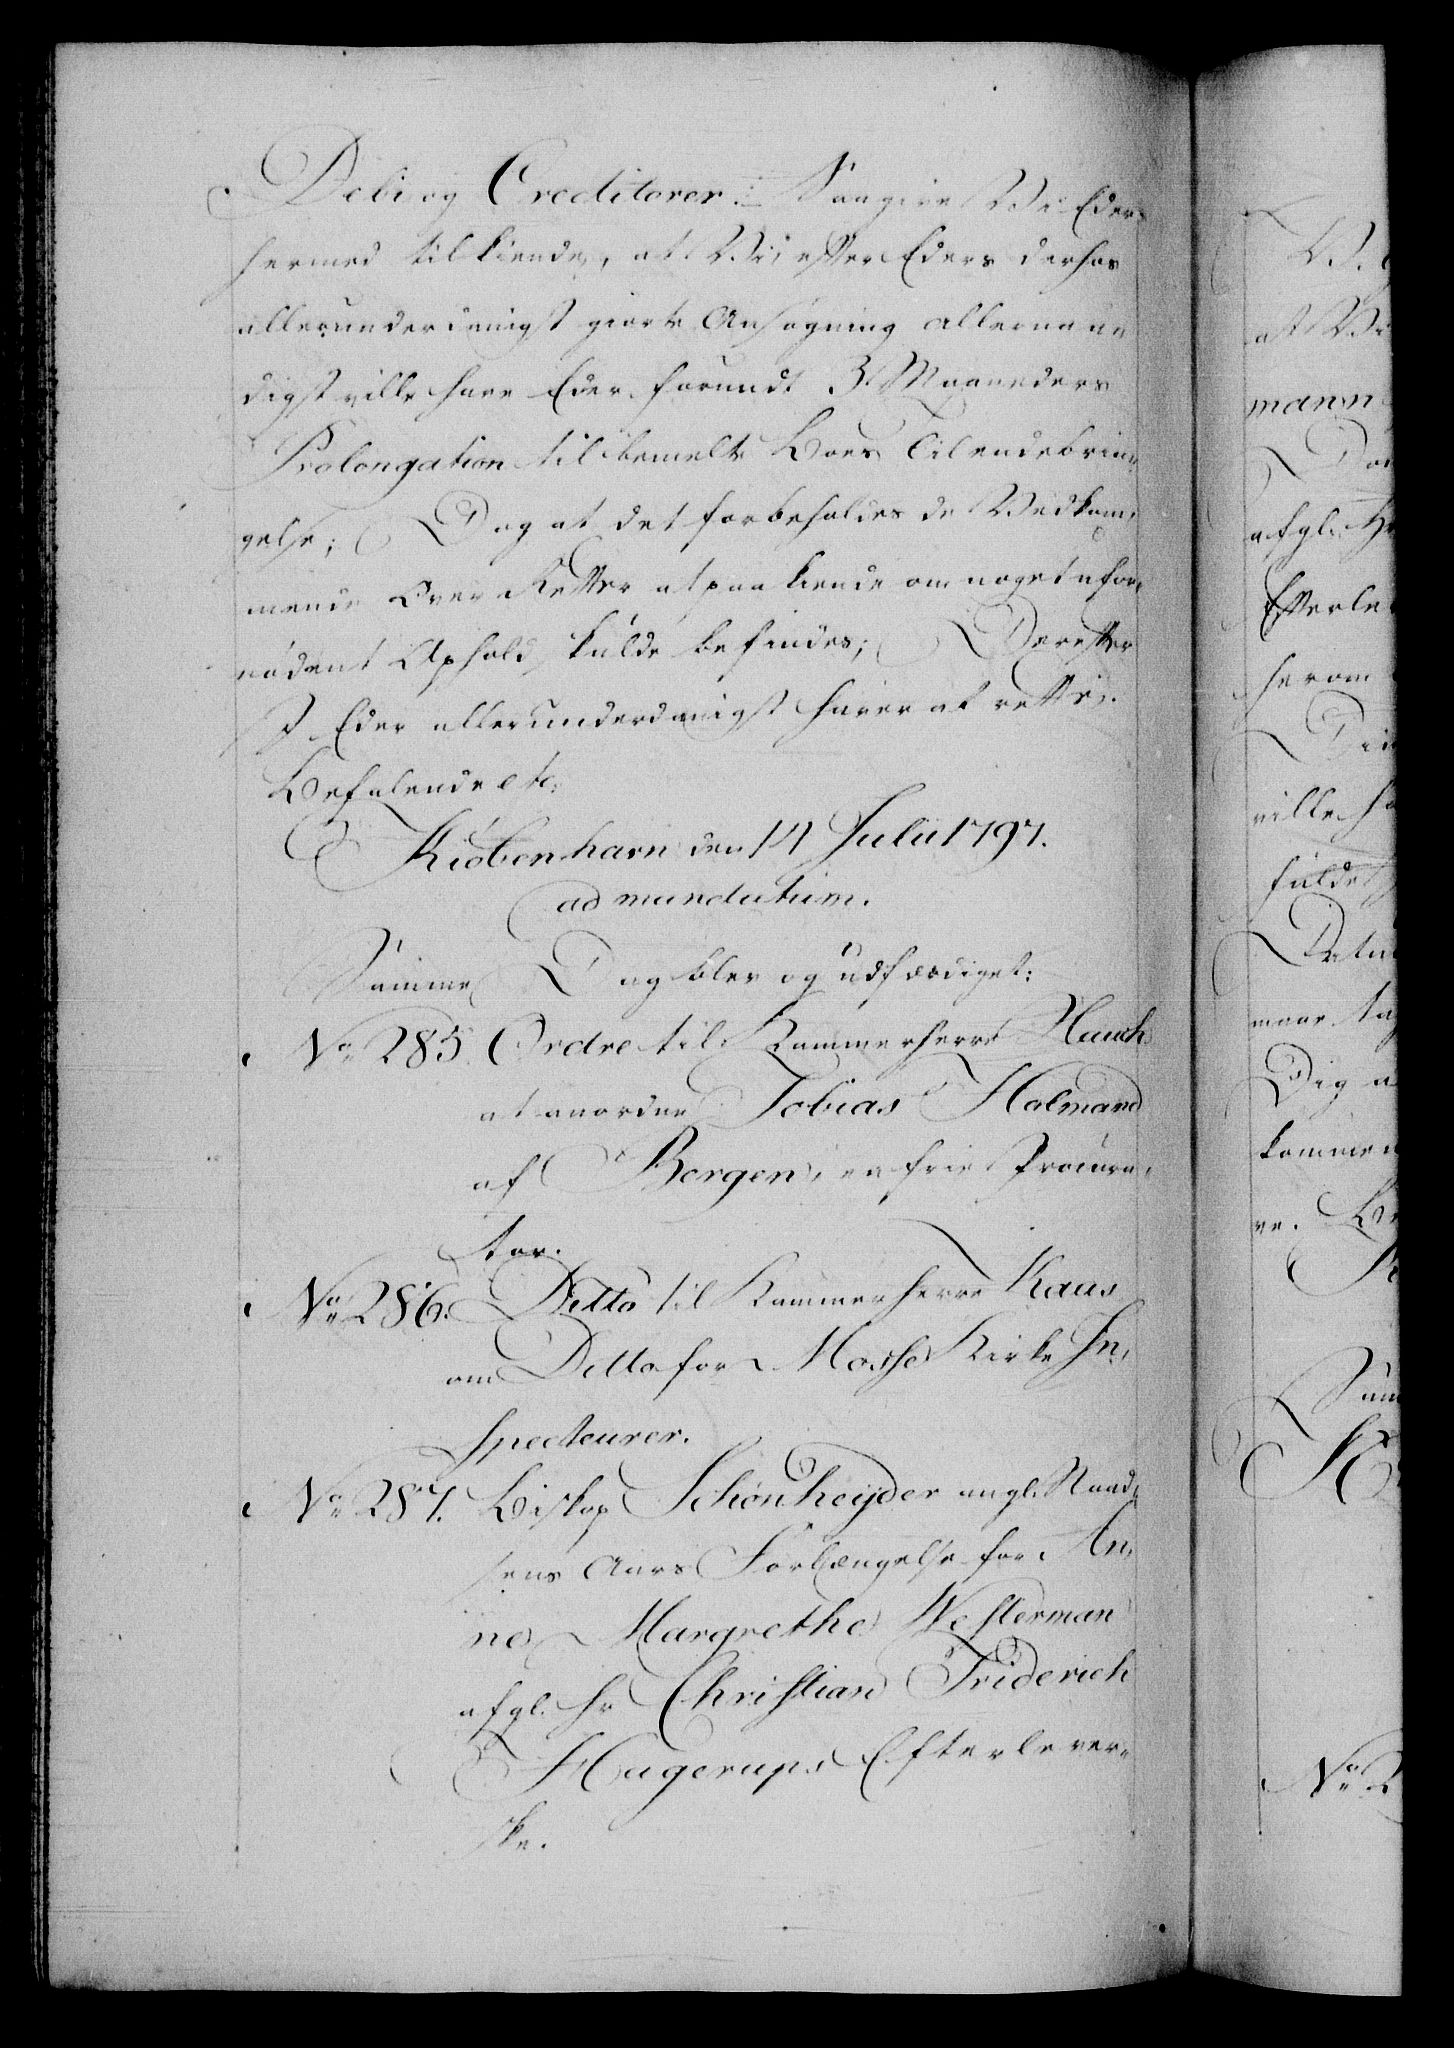 Debi og Creditorer :/: Saa give Vi Eder
hermed tilkiende, at Vi efter Eders derhos
allerunderdanigst giorte Ansøgning allernaa„
digst ville have Eder forundt 3 Maaneders
Prolongation til bemelte Boes Tilendebrin„
gelse; Dog at det forbeholdes de Vedkom„
mende Over Retter at paakiende om noget ufor„
nødent Ophold skulde befindes; Derefter
I Eder allerunderdanigst haver at rette.
Befalende etc:
Kiøbenhavn den 14 Julii 1797.
ad mandatum.
Samme Dag blev og udfærdiget:
No 285. Ordre til Kammerherre Hauch
at anordne Tobias Holmand
af Bergen, en frie Procura„
tor.
No 286. Ditto til Kammerherre Kaas
om Ditto for Mosse Kirke In„
specteurer.
No 287. Biskop Schønheyder angl. Naad„
sens Aars Forlængelse for An„
ne Margrethe Westerman
afgl. Hr Christian Friderich
Hagerups Efterlever„
ske.
W.
at Vi
mann
Dor
afgl. Hr
Efterle
herom
ville ha
fulde
maae tag
Dig a
kommen
re. Be
Sam
No 2